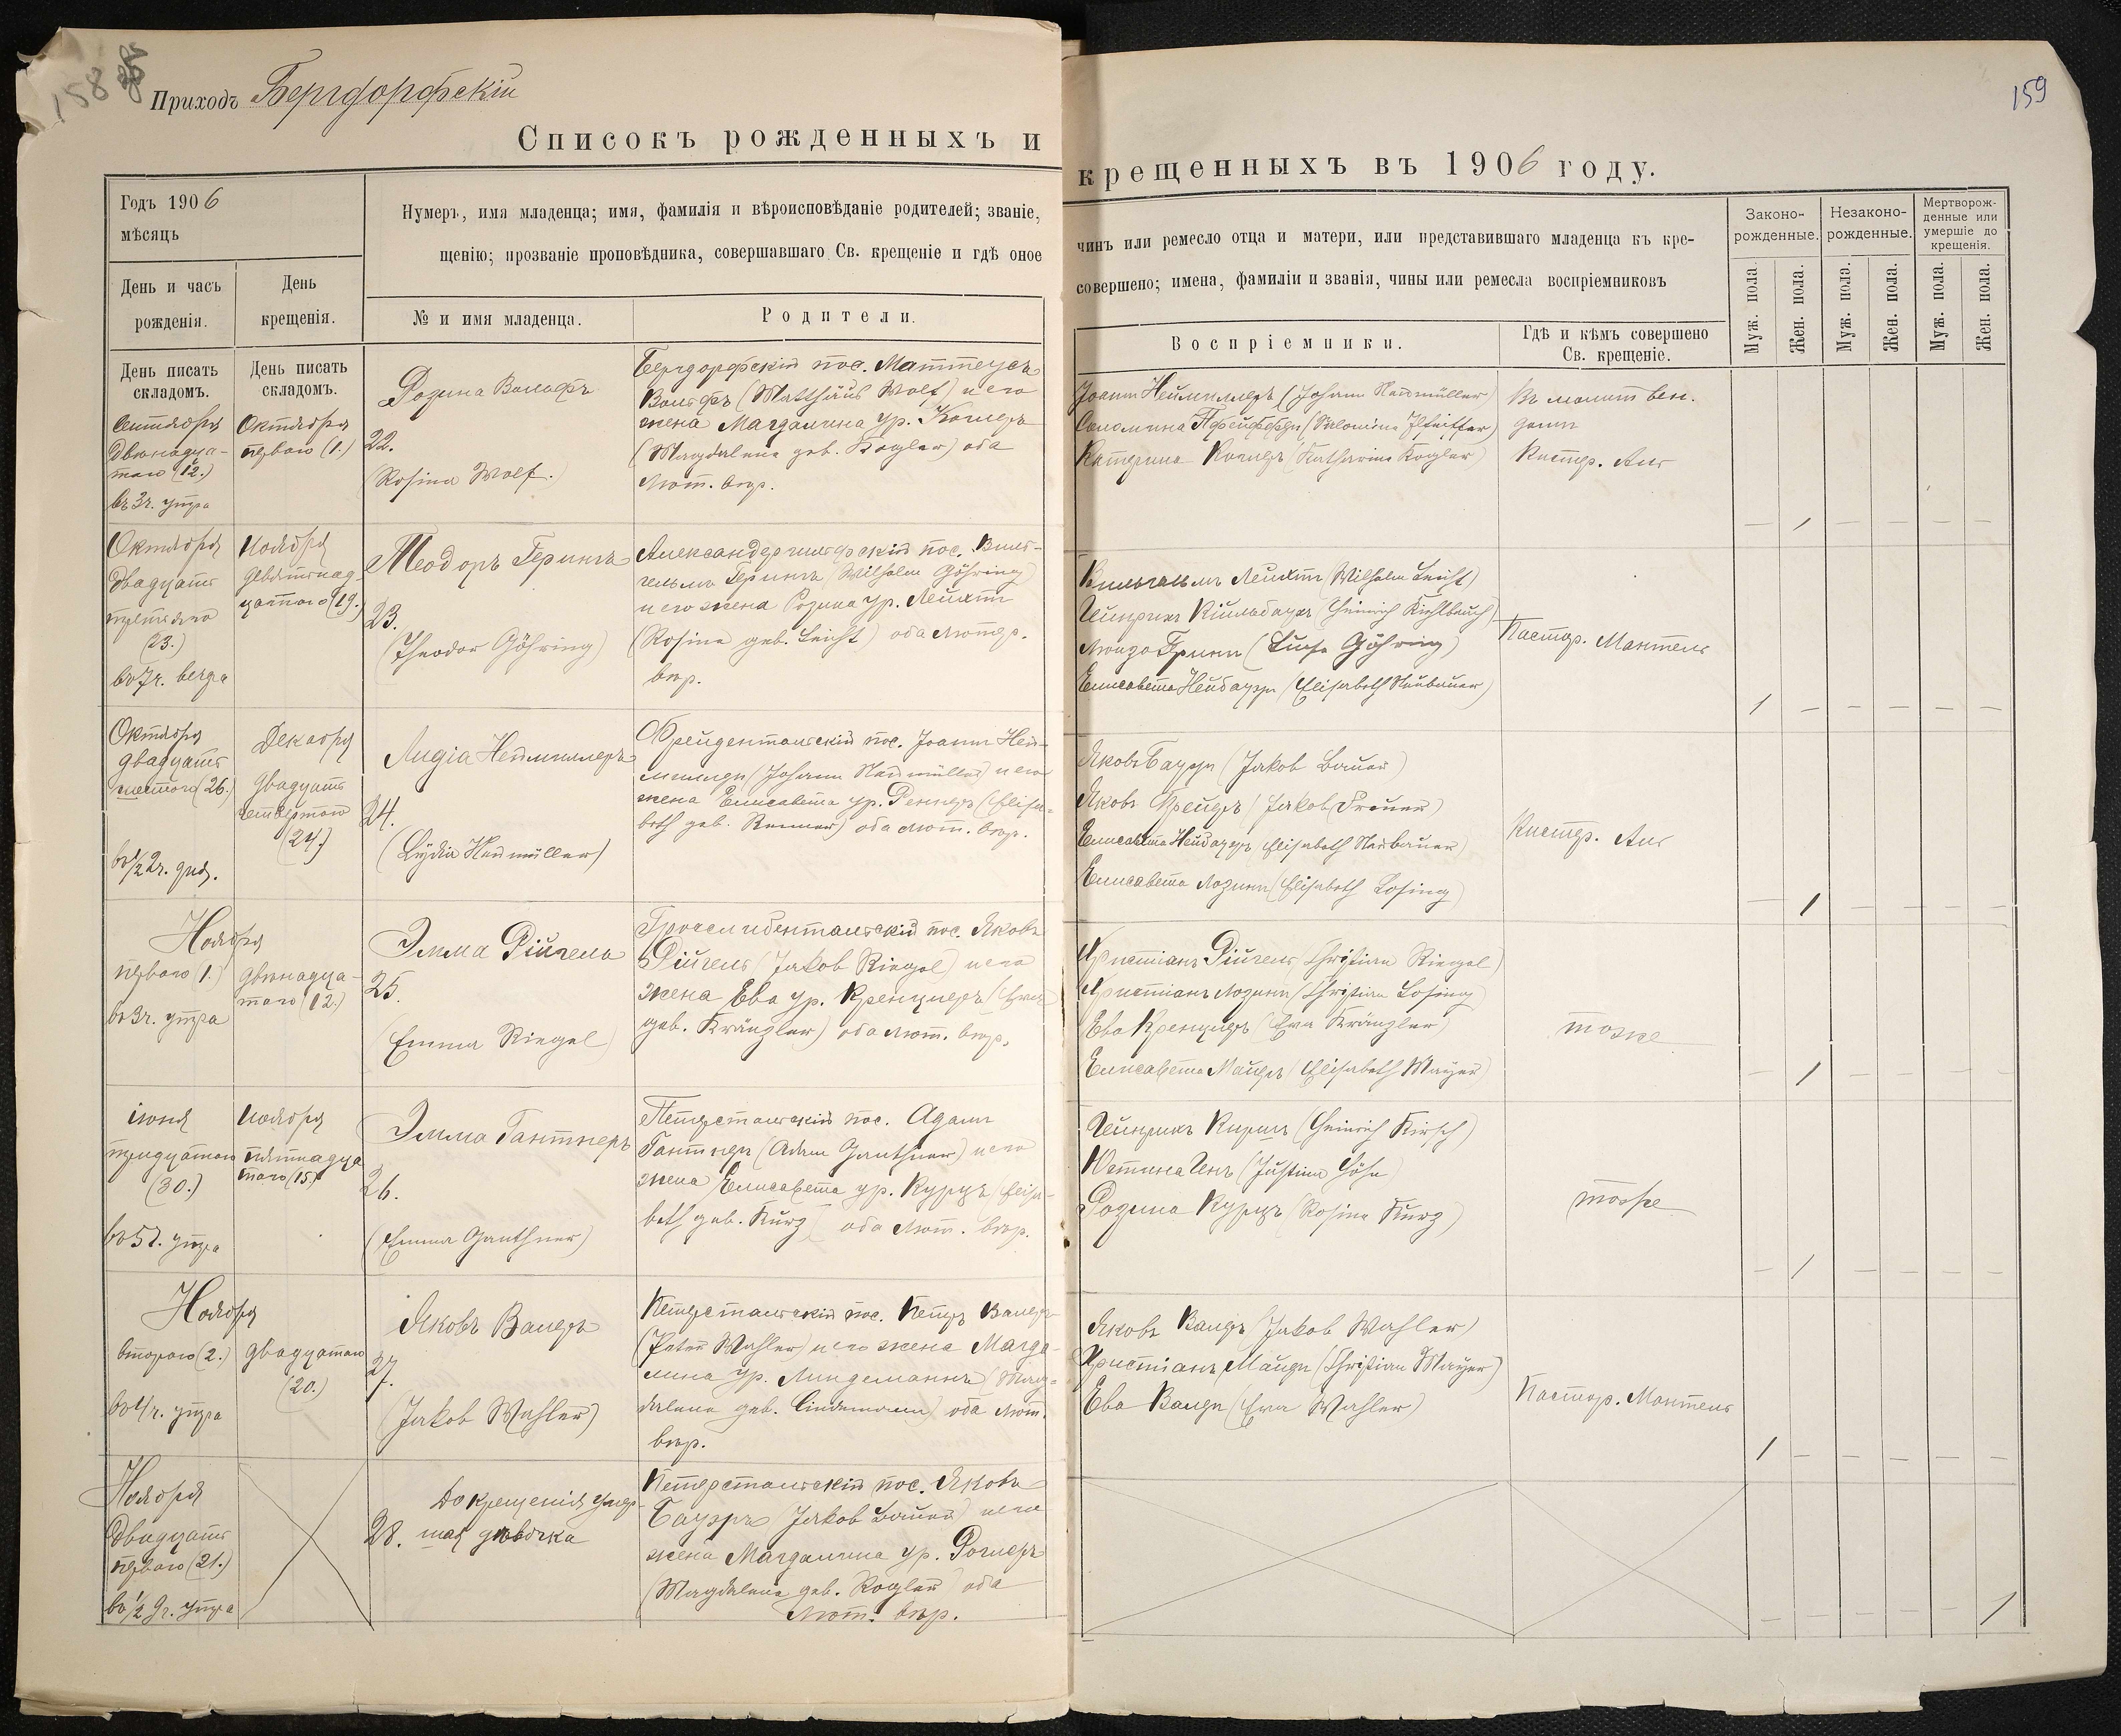 158
Приходъ Бергдорфскій
159
Списокъ рожденныхъ и
крещенныхъ въ 1906 году.
Годъ 1906
мѣсяцъ
День и часъ
рожденія.
День
крещенія.
Нумеръ, имя младенца; имя, фамилія и вѣроисповѣданіе родителей; званіе,
щенію; прозваніе проповѣдника, совершавшаго Св. крещеніе и гдѣ оное
№ и имя младенца.
Родители.
чинъ или ремесло отца и матери, или представившаго младенца къ кре-
совершено; имена, фамиліи и званія, чины или ремесла воспріемниковъ
Воспріемники.
Гдѣ и кѣмъ совершено
Св. крещеніе.
Законо-
рожденные.
Незаконо-
рожденные.
Мертворож-
денные или
умершіе до
крещенія.
Муж. пола.
Жен. пола.
Муж. пола.
Жен. пола.
Муж. пола.
Жен. пола.
День писать
складомъ.
День писать
складомъ.
Сентября
двѣнадца-
таго (12.)
въ 3 ч. утра
Октября
перваго (1.)
Розина Вольфъ
22.
(Rosina Wolf.)
Бергдорфскій пос. Маттеусъ
Вольфъ (Matthäus Wolf) и его
жена Магдалина ур. Коглеръ
(Magdalena geb. Kogler) оба
лют. вѣр.
Іоаннъ Неймиллеръ (Johann Neumüller)
Саломина Пфейфферъ (Salomina Pfeiffer)
Катерина Коглеръ (Katharina Kogler)
Въ молитвен.
домѣ
Кистер. Аис
Октября
двадцать
третьяго
(23.)
въ 7 ч. вечера
Ноября
девятнад-
цатаго (19.)
Теодоръ Герингъ
23.
(Theodor Göhring)
Александергильфскій пос. Виль-
гельмъ Герингъ (Wilhelm Göhring)
и его жена Розина ур. Лейхтъ
(Rosina geb. Leicht) оба лютер.
вѣр.
Вильгельмъ Лейхтъ (Wilhelm Leicht)
Гейнрихъ Кильбаухъ (Heinrich Kiehlbauch)
Луиза Герингъ (Luise Göhring)
Елисавета Нейбауэръ (Elisabeth Neubauer)
Пастор. Мантель
Октября
двадцать
шестого (26.)
въ 1/2 2 ч. дня.
Декабря
двадцать
четвертаго
(24.)
Лидія Неймиллеръ
24.
(Lydia Neumüller)
Фрейдентальскій пос. Іоаннъ Ней-
миллеръ (Johann Neumüller) и его
жена Елисавета ур. Реннеръ (Elisa-
beth geb. Renner) оба лют. вѣр.
Яковъ Бауэръ (Jakob Bauer)
Яковъ Фрейеръ (Jakob Freuer)
Елисавета Нейбауеръ (Elisabeth Neubauer)
Елисавета Лозингъ (Elisabeth Losing)
Кистер. Аис
Ноября
перваго (1.)
въ 3 ч. утра
двѣнадца-
таго (12.)
Эмма Рійгель
25.
(Emma Riegel)
Гросслибентальскій пос. Яковъ
Рійгель (Jakob Riegel) и его
жена Ева ур. Кренцлеръ (Eva
geb. Kränzler) оба лют. вѣр.
Христіанъ Рійгель (Christian Riegel)
Христіанъ Лозингъ (Christian Losing)
Ева Кренцлеръ (Eva Kränzler)
Елисавета Майеръ (Elisabeth Mayer)
тоже
Іюня
тридцатаго
(30.)
въ 5 ч. утра
Ноября
пятнадца
таго (15.)
Эмма Гантнеръ
26.
(Emma Ganthner)
Петерстальскій пос. Адамъ
Гантнеръ (Adam Ganthner) и его
жена Елисавета ур. Курцъ (Elisa-
beth geb. Kurz) оба лют. вѣр.
Гейнрихъ Киршъ (Heinrich Kirsch)
Юстина Генъ (Justina Höhn)
Розина Курцъ (Rosina Kurz)
тоже
Ноября
второго (2.)
въ 4 ч. утра
двадцатаго
(20.)
Яковъ Валеръ
27.
(Jakob Wahler)
Петерстальскій пос. Петръ Валеръ
(Peter Wahler) и его жена Магда-
лина ур. Линдеманнъ (Mag-
dalena geb. Lindemann) оба лют.
вѣр.
Яковъ Валеръ (Jakob Wahler)
Христіанъ Майеръ (Christian Mayer)
Ева Валеръ (Eva Wahler)
Пастор. Мантель
Ноября
двадцать
перваго (21.)
въ 1/2 9 ч. утра
До крещенія умер-
28. шая дѣвочка
Петерстальскій пос. Яковъ
Бауэръ (Jakob Bauer) и его
жена Магдалина ур. Роглеръ
(Magdalena geb. Rogler) оба
лют. вѣр.